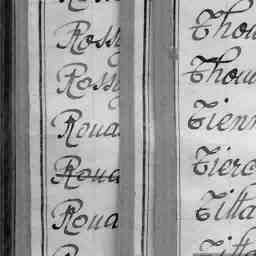 Rossy
Rossy
Roua
Roua
Roua
Thou
Thou
Tienn
Tierc
Titta
Titta